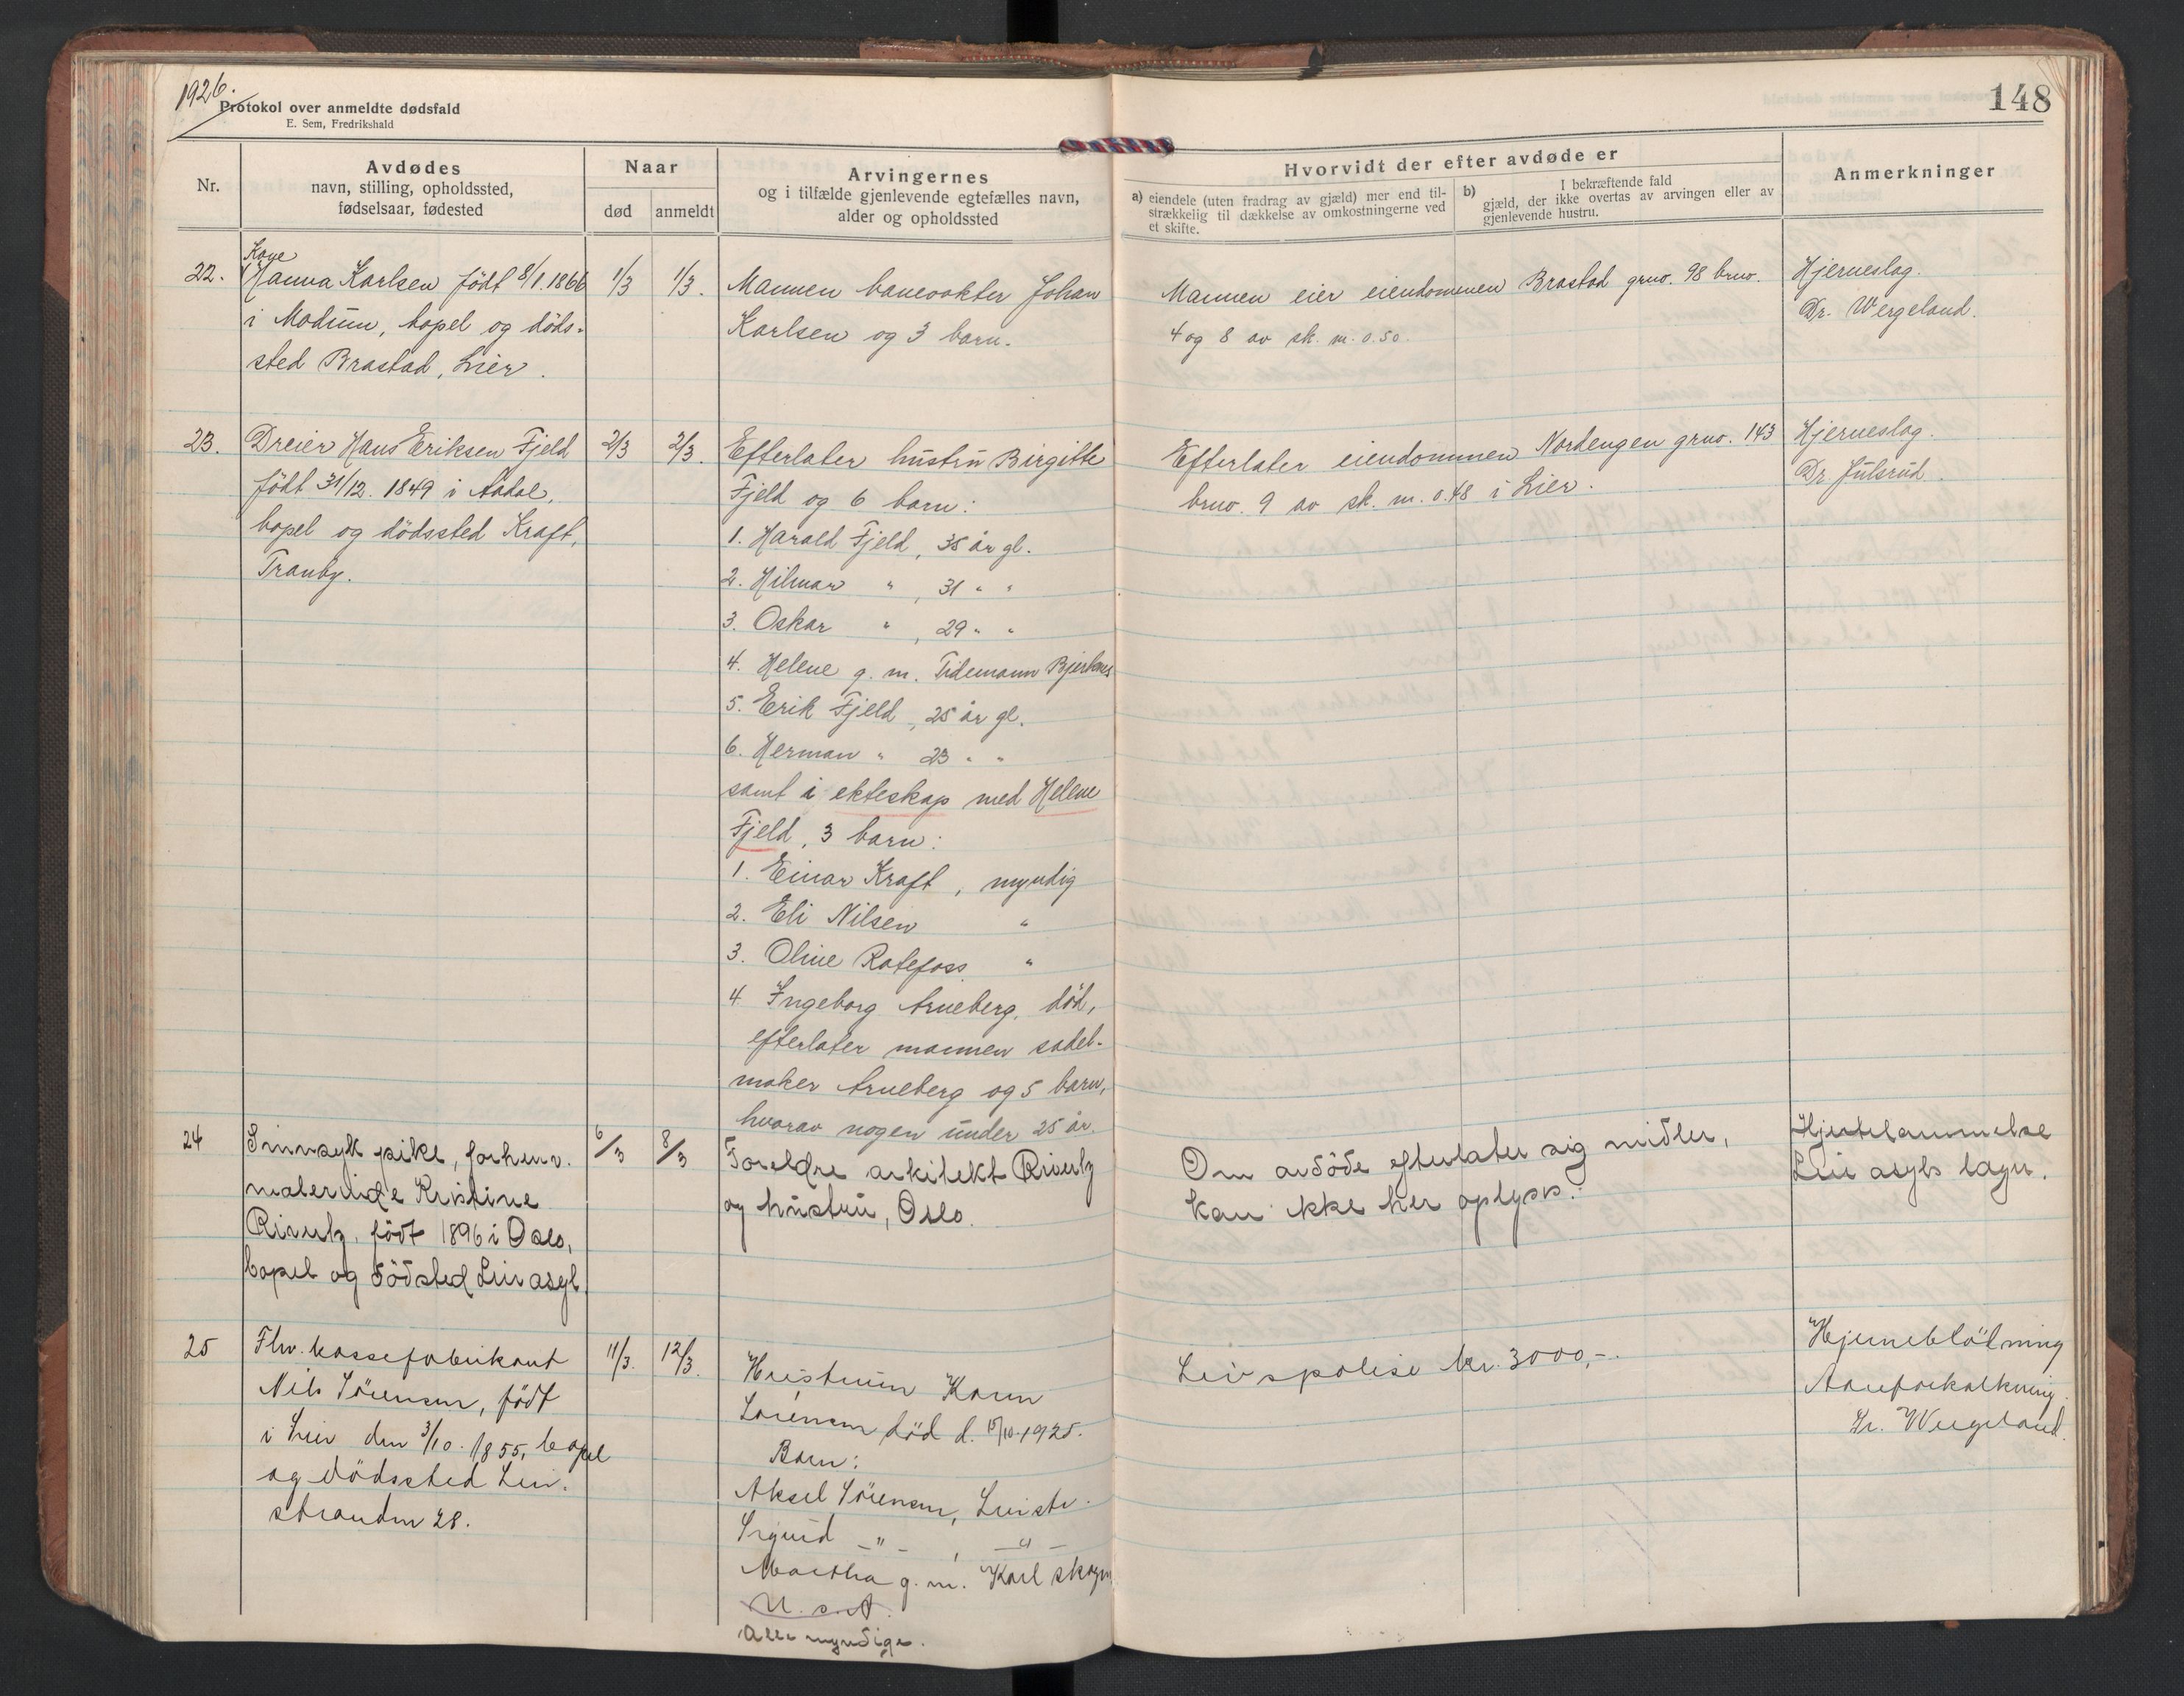 1926.
Protokol over anmeldte dødsfald
E. Sem, Fredrikshald
148
Nr.
Avdødes
navn, stilling, opholdssted,
fødselsaar, fødested
Naar
død
anmeldt
Arvingernes
og i tilfælde gjenlevende egtefælles navn,
alder og opholdssted
Hvorvidt der efter avdøde er
a) eiendele (uten fradrag av gjæld) mer end til-
strækkelig til dækkelse av omkostningerne ved
et skifte.
b) I bekræftende fald
gjæld, der ikke overtas av arvingen eller av
gjenlevende hustru.
Anmerkninger
22.
Kone
Hanna Karlsen født 8/1.1866
i Modum, bopel og döds-
sted Brastad, Lier.
1/3
1/3.
Mannen banevokter Johan
Karlsen og 3 barn.
Mannen eier eiendommen Brastad grno. 98 brno.
4 og 8 av sk. m. 0.50.
Hjerneslag.
Dr. Wergeland.
23.
Dreier Hans Eriksen Fjeld
födt 31/12. 1849 i Aadal,
bopel og dödssted Kraft,
Tranby.
2/3
2/3.
Efterlater hustru Birgitte
Fjeld og 6 barn:
1. Harald Fjeld, 35 år gl.
2. Hilmar " , 31 " "
3. Oskar " , 29 " "
4. Helene g. m. Tidemann Bjerknes
5. Erik Fjeld, 25 år gl.
6. Herman " 23 " "
samt i ekteskap med Helene
Fjeld, 3 barn:
1. Einar Kraft, myndig
2. Eli Nilsen "
3. Oline Ratefoss "
4. Ingeborg Arneberg, död,
efterlater mannen sadel-
maker Arneberg og 5 barn,
hvorav nogen under 25 år.
Efterlater eiendommen Nordengen grno. 143
brno. 9 av sk. m. 0.48 i Lier.
Hjerneslag.
Dr. Julsrud.
24
Sinnsyk pike, forhenv.
malerinde Kristine
Rivertz, födt 1896 i Oslo,
bopel og dödsted Lier asyl.
6/3
8/3
Foreldre arkitekt Rivertz
og hustru, Oslo.
Om avdöde efterlater sig midler,
kan ikke her oplyses.
Hjertelammelse
Lier asyls læge.
25
Fhv. kassefabrikant
Nils Sörensen, födt
i Lier den 3/10. 1855, bopel
og dödssted Lier-
stranden 28.
11/3.
12/3.
Hustruen Karen
Sörensen död d. 15/10.1925.
Barn:
Aksel Sörensen, Lierstr.
Sigurd - " - , - " -
Martha g. m. Karl Skogen
U. S. A.
Alle myndige.
Livspolise kr. 3000,-.
Hjerneblödning
Aareforkalkning.
Dr. Wergeland.